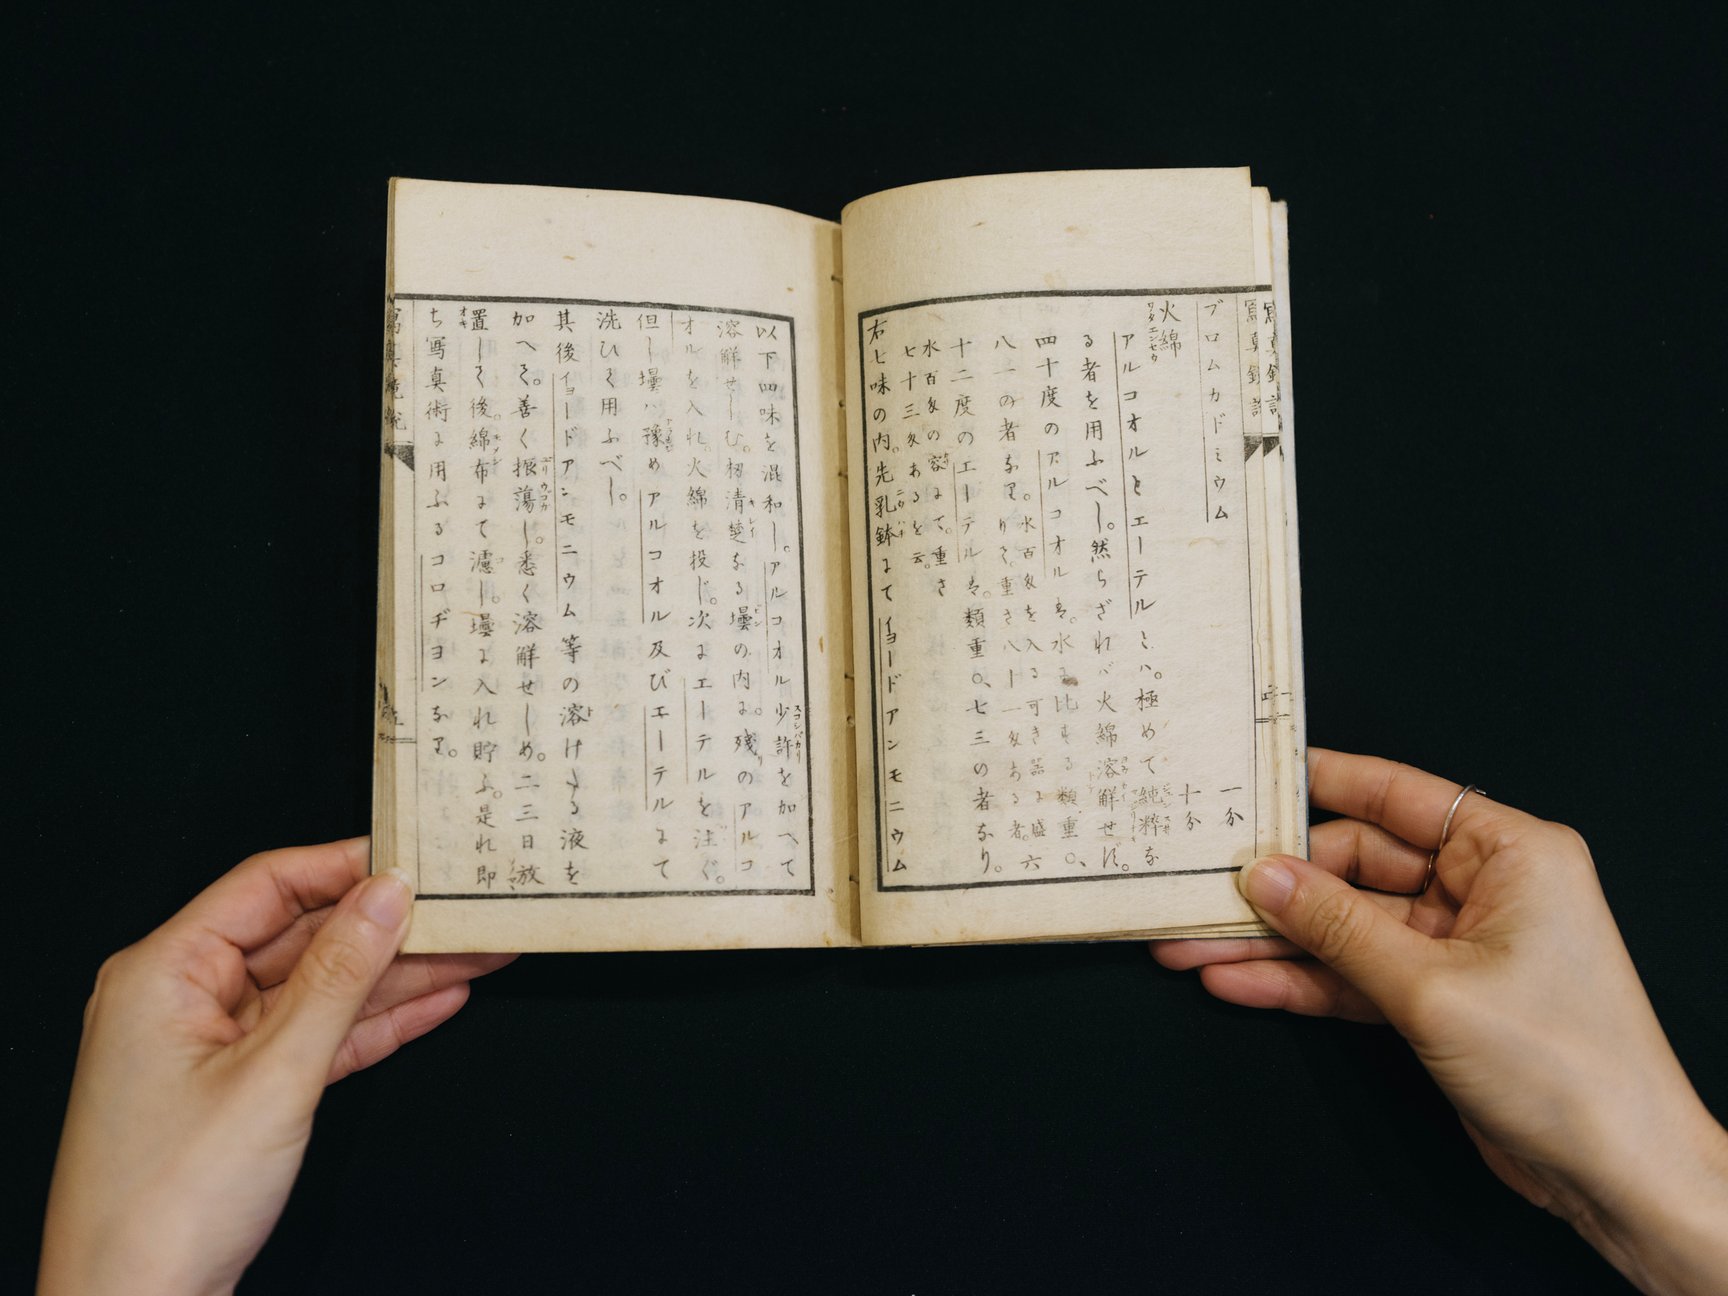 ブロムカドミウム 一分
火綿 十分
アルコオルとエーテルとハ。極めて純粋な
る者を用ふべし。然らざれバ火綿溶解せず。
四十度のアルコオルは。水に比する類重〇、
八一の者なり。水百匁を入る可き器に盛
りて。重さ八十一匁ある者。六
十二度のエーテルは。類重〇、七三の者なり。
水百匁の容にて。重さ
七十三匁あるを云。
右七味の内。先乳鉢にて イヨードアンモニウム
以下四味を混和し。アルコオル少許を加へて
溶解せしむ。扨清楚なる壜の内に。残りのアルコ
オルを入れ。火綿を投じ。次にエーテルを注ぐ。
但し壜ハ豫めアルコオル及びエーテルにて
洗ひて用ふべし。
其後イヨードアンモニウム等の溶けたる液を
加へて。善く振蕩し。悉く溶解せしめ。二三日放
置して後。綿布にて濾し。壜に入れ貯ふ。是れ即
ち寫真術に用ふるコロヂヨンなり。
寫真鏡説